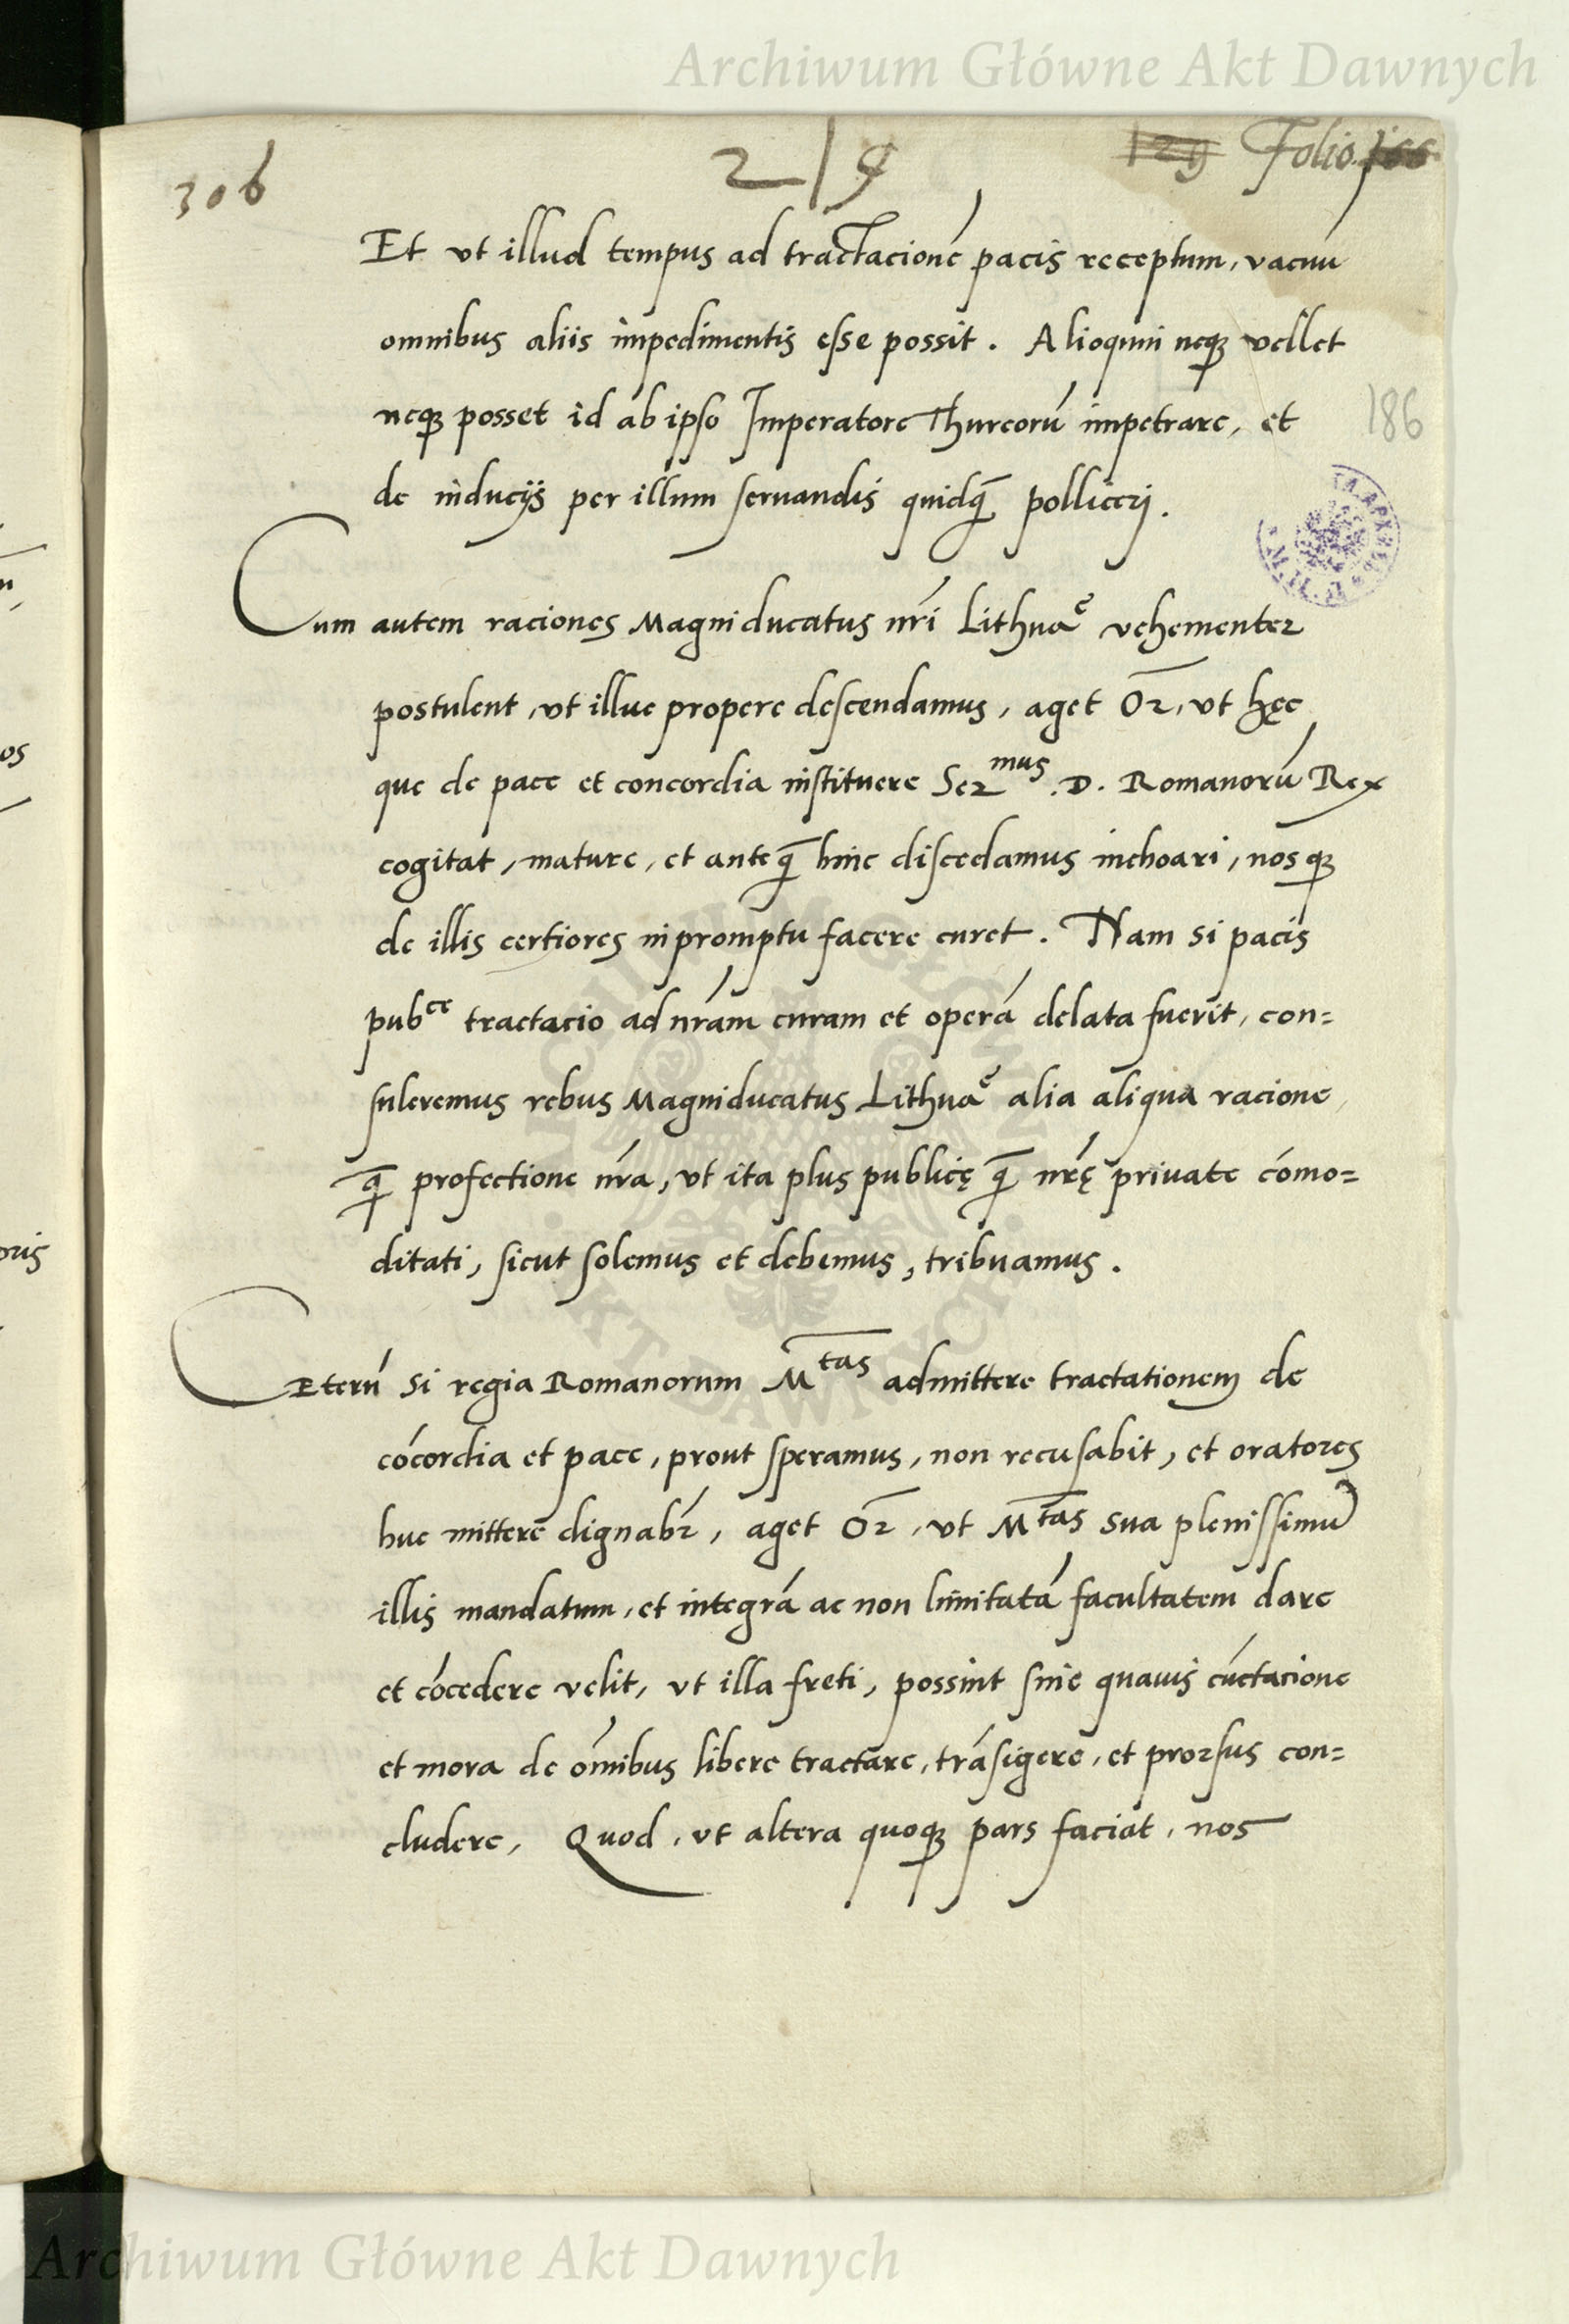 Archiwum Główne Akt Dawnych
306
219
129 Folio
Et vt illud tempus ad tractacionē pacis receptum, vacuu
omnibus aliis impedimentis esse possit. Alioquin neq3 vellet
neq3 posset id ab ipso Imperatore Thurcorū impetrare, et
186
de inducijs per illum seruandis quidq̄ polliceri.
Cum autem raciones Magniducatus nr̄i Lithuaę vehementer
postulent, vt illuc propere descendamus, aget Or̄, vt hęc
que de pace et concordia instituere Ser^mus .D. Romanorū Rex
cogitat, mature, et anteq̄ hinc discedamus inchoari, nosq3
de illis certiores in promptu facere curet. Nam si pacis
pub^ce tractacio ad nr̄am curam et operā delata fuerit, con=
suleremus rebus Magniducatus Lithuaę alia aliqua racione,
q̄ profectione nr̄a, vt ita plus publicę q̄ nr̄ę priuate cōmo=
ditati, sicut solemus et debemus, tribuamus.
Ceterū si regia Romanorum M^tas admittere tractationem de
cōcordia et pace, prout speramus, non recusabit, et oratores
huc mittere dignabr̄, aget Or̄, vt M^tas sua plenissimū
illis mandatum, et integrā ac non limitatā facultatem dare
et cōcedere velit, vt illa freti, possint sine quauis cūctacione
et mora de om̄ibus libere tractare, trāsigere, et prorsus con=
cludere, Quod, vt altera quoq3 pars faciat, nos
Archiwum Główne Akt Dawnych